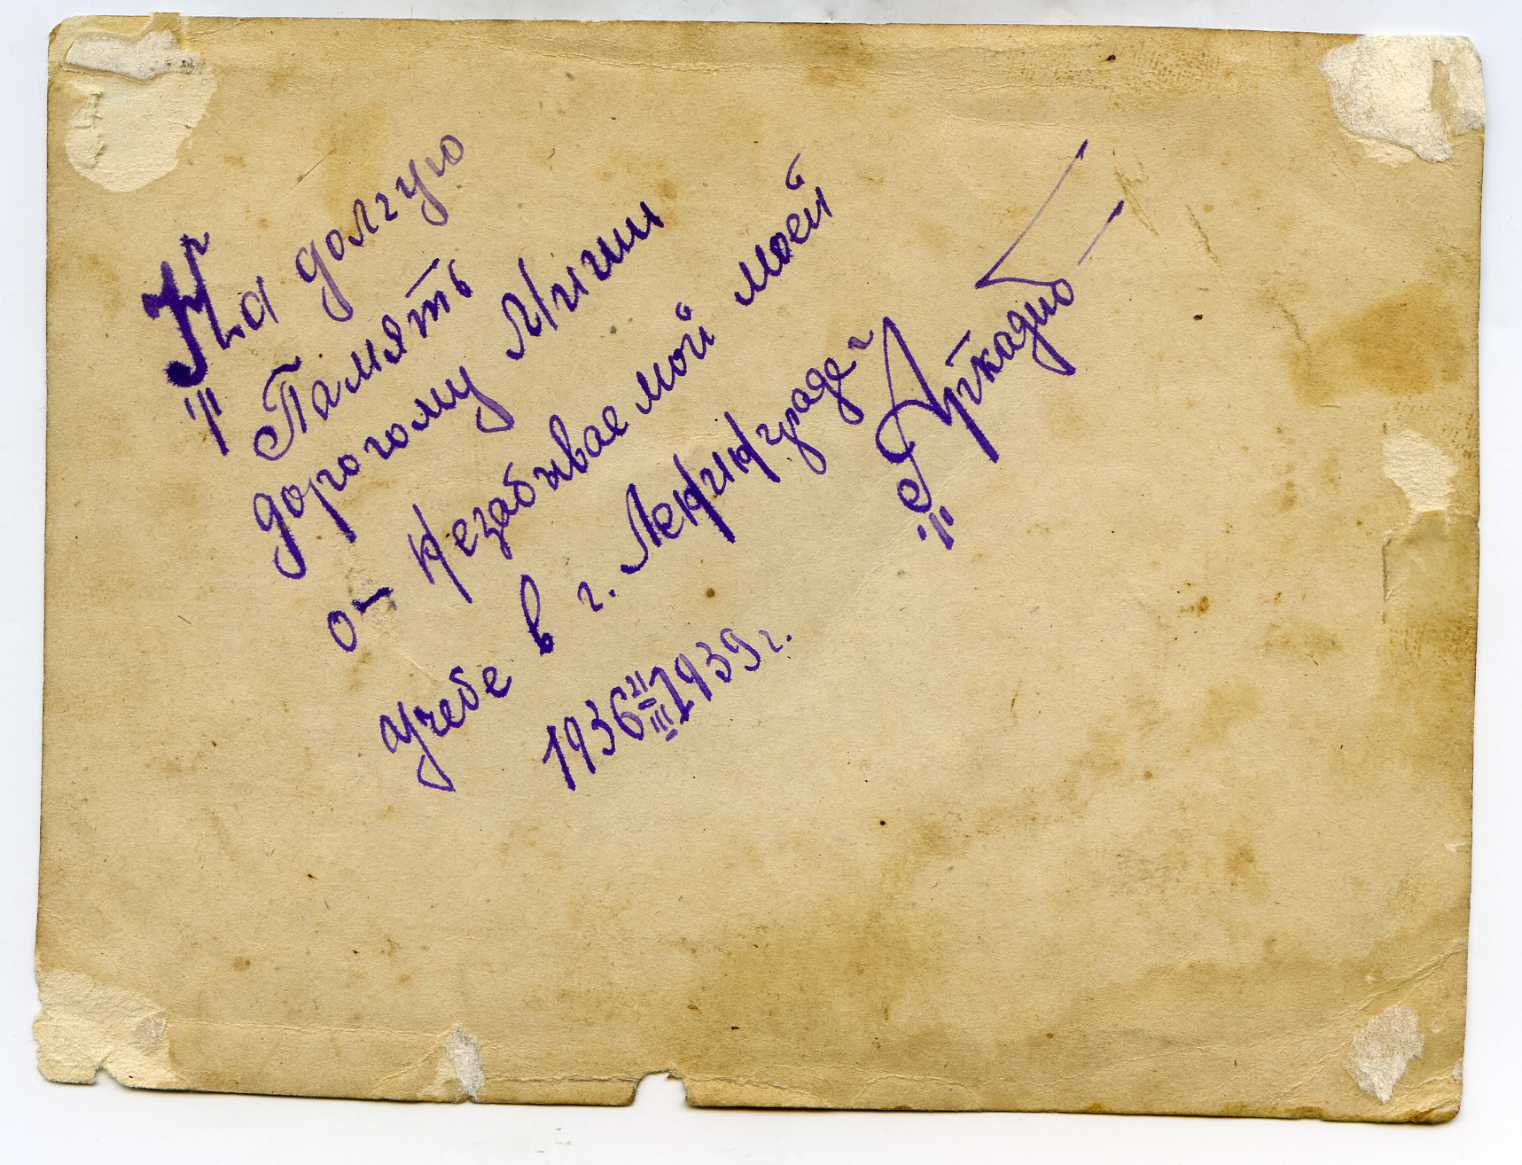 На долгую
Память
дорогому Миши
от незабываемой моей
учебе в г. Ленинграде
Аркадию
1936 21/III 1939 г.